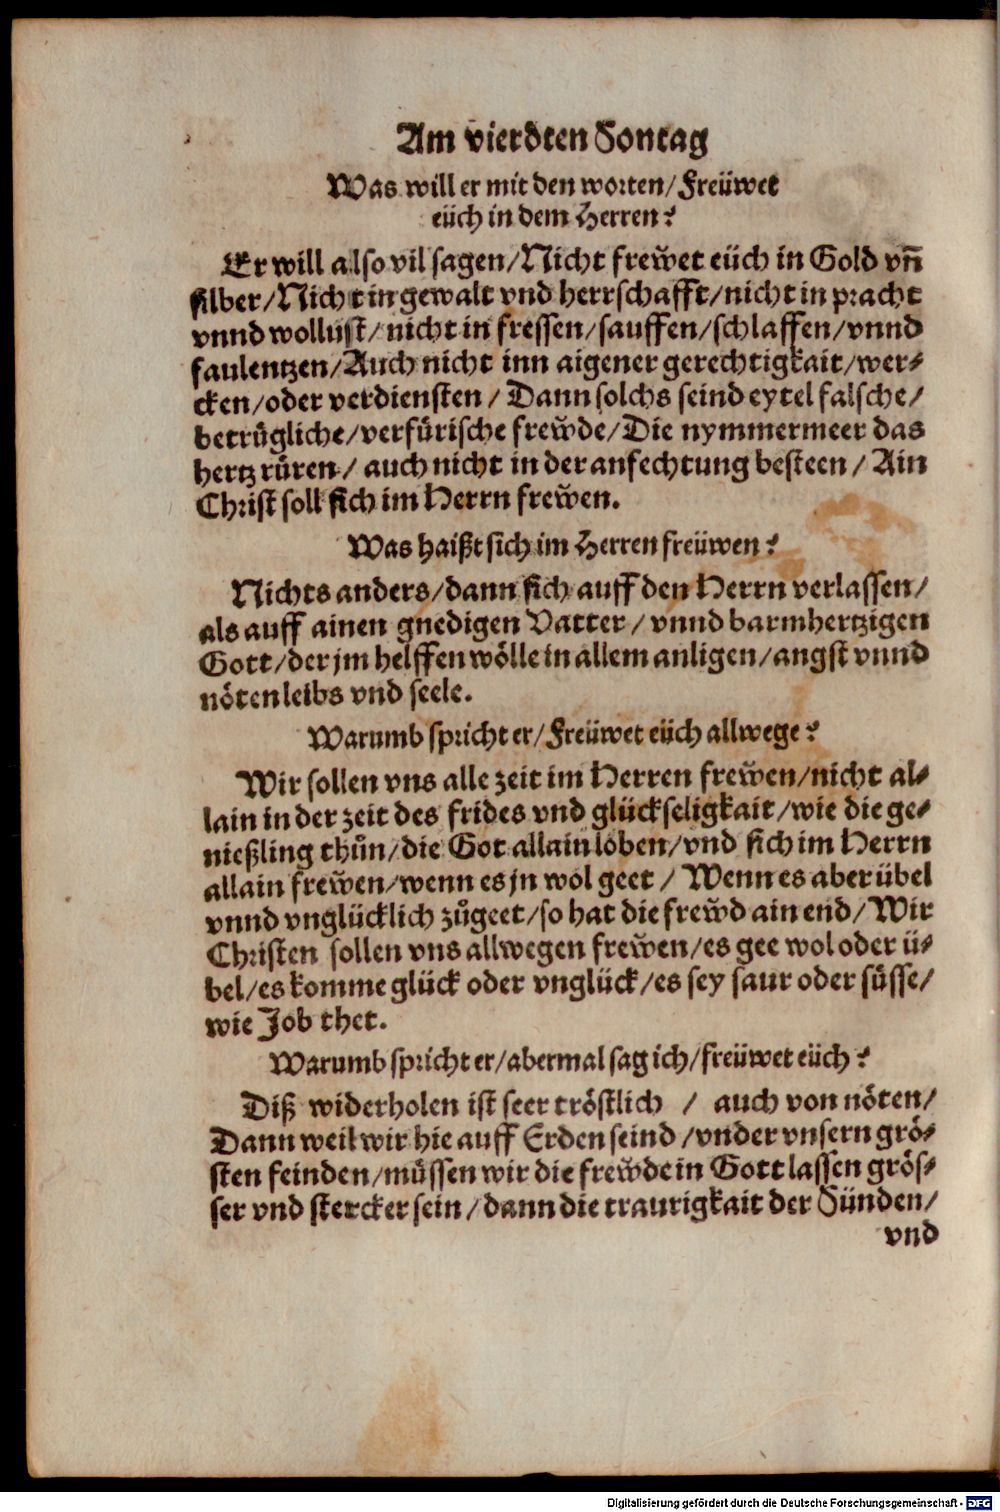 Am vierdten Sontag
Was will er mit den worten/ Freüwet
eüch in dem Herren?
Er will also vil sagen/ Nicht frew̃et eüch in Gold vñ
silber/ Nicht in gewalt vnd herrschafft/ nicht in pracht
vnnd wollust/ nicht in fressen/ sauffen/ schlaffen/ vnnd
faulentzen/ Auch nicht inn aigener gerechtigkait/ wer-
cken/ oder verdiensten/ Dann solchs seind eytel falsche/
betrügliche/ verfürische frew̃de/ Die nymmermeer das
hertz rüren/ auch nicht in der anfechtung besteen/ Ain
Christ soll sich im Herrn frew̃en.
Was haißt sich im Herren freüwen?
Nichts anders/ dann sich auff den Herrn verlassen/
als auff ainen gnedigen Vatter/ vnnd barmhertzigen
Gott/ der jm helffen wölle in allem anligen/ angst vnnd
nöten leibs vnd seele.
Warumb spricht er/ Freüwet eüch allwege?
Wir sollen vns alle zeit im Herren frew̃en/ nicht al-
lain in der zeit des frides vnd glückseligkait/ wie die ge-
nießling thůn/ die Got allain loben/ vnd sich im Herrn
allain frew̃en/ wenn es jn wol geet/ Wenn es aber übel
vnnd vnglücklich zůgeet/ so hat die frew̃d ain end/ Wir
Christen sollen vns allwegen frew̃en/ es gee wol oder ü-
bel/ es komme glück oder vnglück/ es sey saur oder süsse/
wie Job thet.
Warumb spricht er/ abermal sag ich/ freüwet eüch?
Diß widerholen ist seer tröstlich / auch von nöten/
Dann weil wir hie auff Erden seind/ vnder vnsern grö-
sten feinden/ müssen wir die frew̃de in Gott lassen grös-
ser vnd stercker sein/ dann die traurigkait der Sünden/
vnd
Digitalisierung gefördert durch die Deutsche Forschungsgemeinschaft - DFG